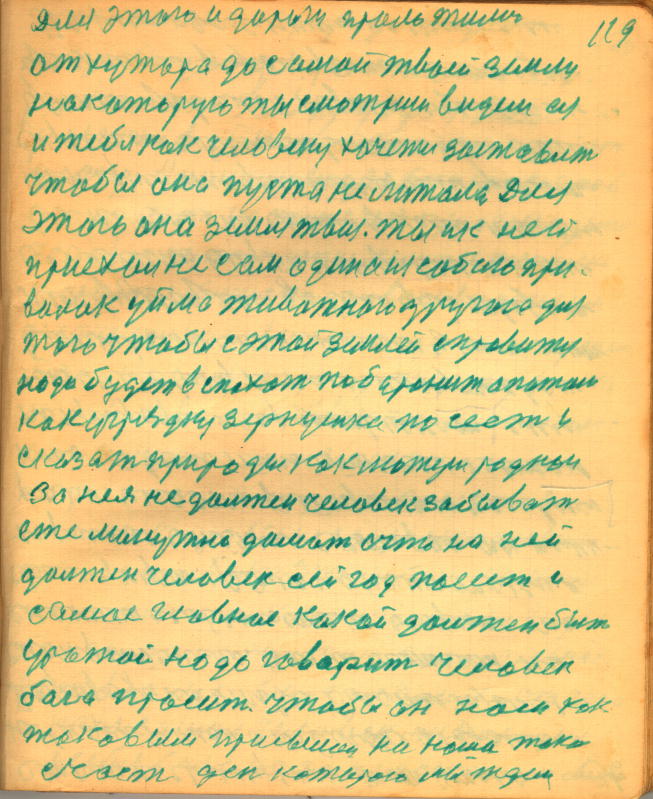 119
Для этого и дороги проложили
от хутора до самой твоей земли
на которую ты смотриш видем ея
и тебя как человеку хочется заставит
чтобы она пуста не литала Для
этого она земля твоя. ты к ней
приехал не сам один а и собою при-
волок уйма живажного другога для
того чтобы с этой землей справитя
надо будет вспохат поборонит а потом
как грядку зернушка посеет и
сказат природы как матери родной
За нея не должен человек забыват
ежеминутно думат что на ней
должен человек сей год посеет и
самое главное какой должен быт
урожай надо говарит человек
бога просит чтобы он нам как
таковым прислал на наша така
счаст ден которого мы ждем